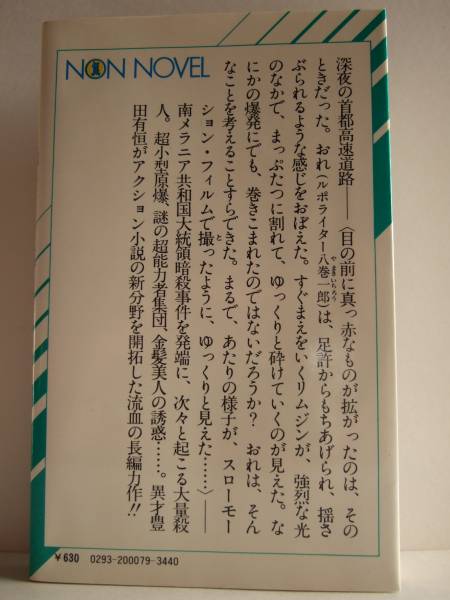 NON NOVEL
深夜の首都高速道路――〈目の前に真っ赤なものが拡がったのは、その
ときだった。おれ(ルポライター八巻一郎)は、足許からもちあげられ、揺さ
やまきいちろう
ぶられるような感じをおぼえた。すぐまえをいくリムジンが、強烈な光
のなかで、まっぷたつに割れて、ゆっくりと砕けていくのが見えた。な
にかの爆発にでも、巻きこまれたのではないだろうか? おれは、そん
なことを考えることすらできた。まるで、あたりの様子が、スローモー
ション・フィルムで撮ったように、ゆっくりと見えた……〉――
と
南メラニア共和国大統領暗殺事件を発端に、次々と起こる大量殺
人。超小型原爆、謎の超能力者集団、金髪美人の誘惑……。異才豊
田有恒がアクション小説の新分野を開拓した流血の長編力作!!
¥630 0293-200079-3440